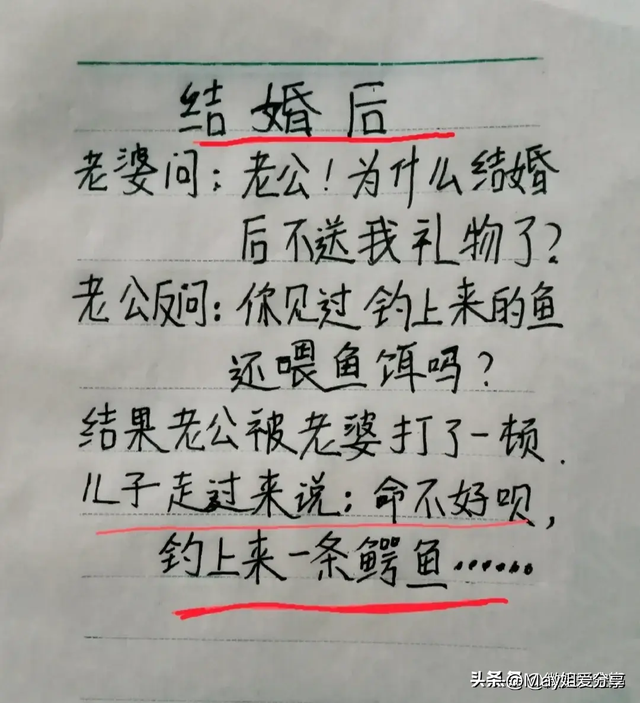 结婚后
老婆问：老公！为什么结婚
后不送我礼物了？
老公反问：你见过钓上来的鱼
还喂鱼饵吗？
结果老公被老婆打了一顿.
儿子走过来说：命不好呗，
钓上来一条鳄鱼……
头条 @May姐爱分享